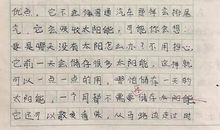 优点，它不会像普通汽车那样会排尾
气，它会吸收太阳能，可能你会想，
要是哪天没有太阳怎么办？不用担心，
它前一天会储存很多太阳能，这样就
可以一点一点的用，要怕储存一天的
太阳能，一个月都不需要储存太阳能
它还可以散发香味，从马路边走过时